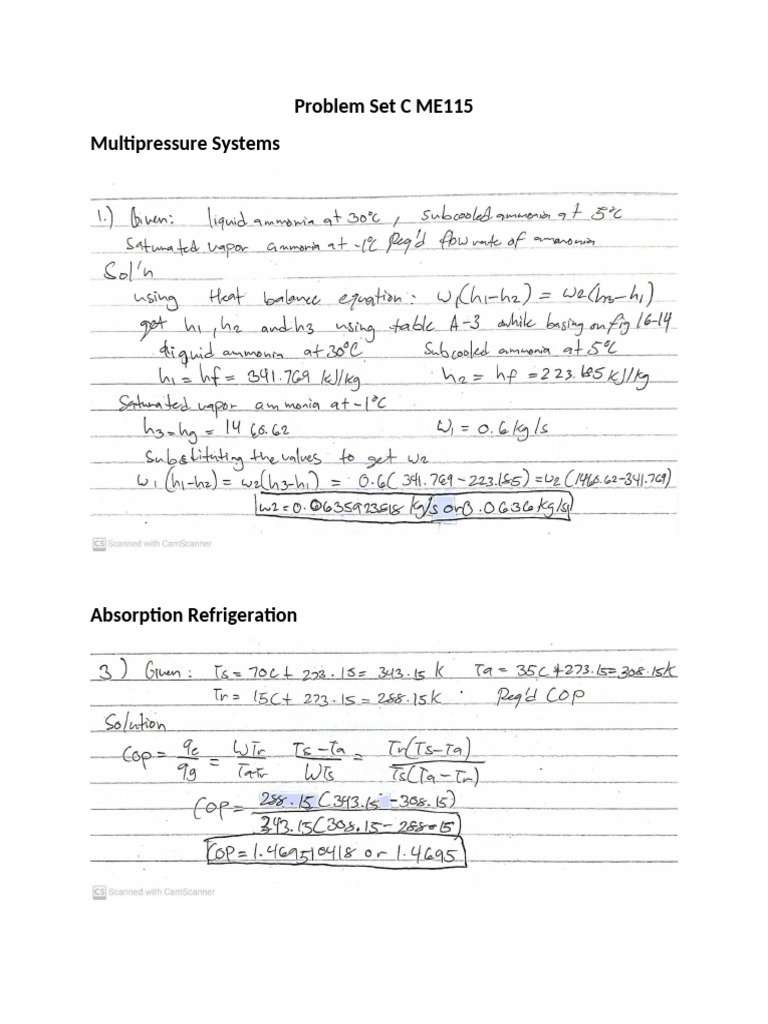 Problem Set C ME115
Multipressure Systems
1.) Given: liquid ammonia at 30°C, subcooled ammonia at 5°C
Saturated vapor ammonia at -1°C Req'd flow rate of ammonia
Sol'n
using Heat balance equation: w1(h1-h2) = w2(h3-h1)
get h1, h2 and h3 using table A-3 while basing on fig 16-14
liquid ammonia at 30°C Subcooled ammonia at 5°C
h1 = hf = 341.769 kJ/kg h2 = hf = 223.185 kJ/kg
Saturated vapor ammonia at -1°C
h3 = hg = 1460.62 w1 = 0.6 kg/s
Substituting the values to get w2
w1(h1-h2) = w2(h3-h1) = 0.6(341.769-223.185) = w2(1460.62-341.769)
w2 = 0.0635923518 kg/s or 0.0636 kg/s
CS Scanned with CamScanner
Absorption Refrigeration
3) Given: Ts = 70C + 273.15 = 343.15 K Ta = 35C + 273.15 = 308.15K
Tr = 15C + 273.15 = 288.15K Req'd COP
Solution
COP = qe/qg = WTr/Ta-Tr Ts-Ta/WTs = Tr(Ts-Ta)/Ts(Ta-Tr)
COP = 288.15(343.15-308.15)/343.15(308.15-288.15)
COP = 1.469510418 or 1.4695
CS Scanned with CamScanner